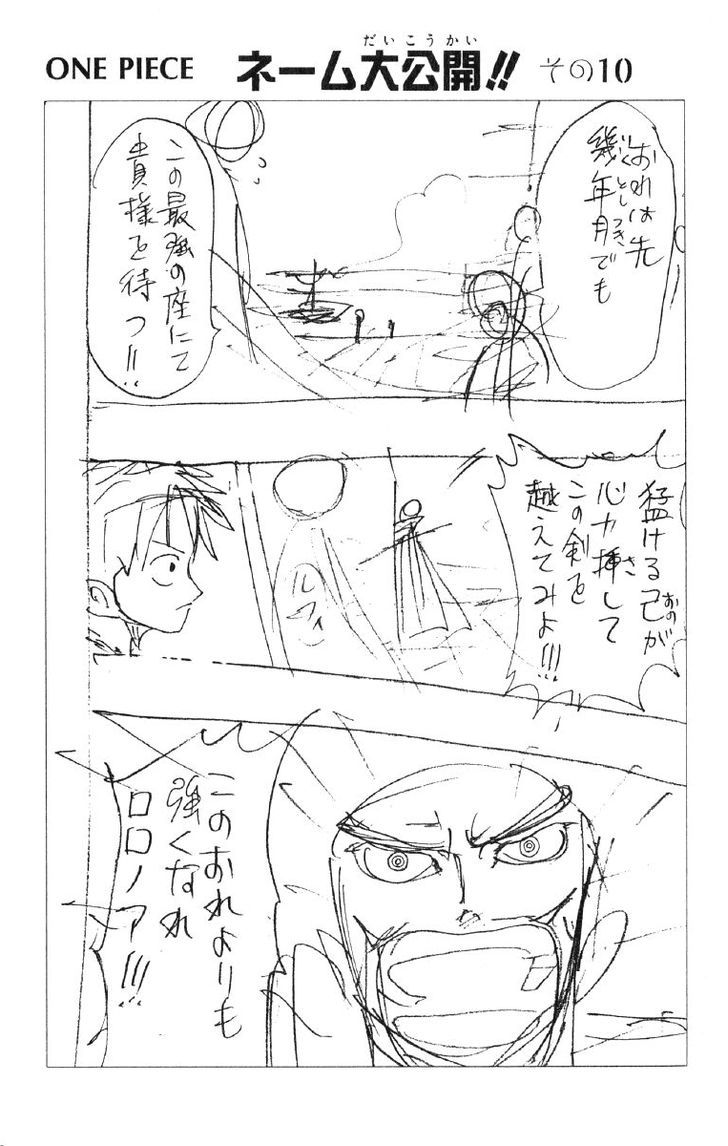 ONE PIECE ネーム大公開!! その10
だいこうかい
おれは先
幾年月でも
いくとしつき
この最強の座にて
貴様を待つ!!
猛ける己が
おのが
心力挿して
さ
この剣を
越えてみよ!!!
ルフィ
このおれよりも
強くなれ
ロロノア!!!